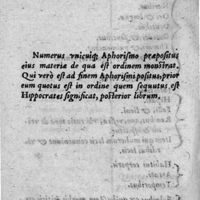 Numerus vnicuiq; Aphorismo præpositus
eius materiæ de qua est ordinem monstrat,
Qui verò est ad finem Aphorismi positus, prior
eum quotus est in ordine quem sequutus est
Hippocrates significat, posterior librum.